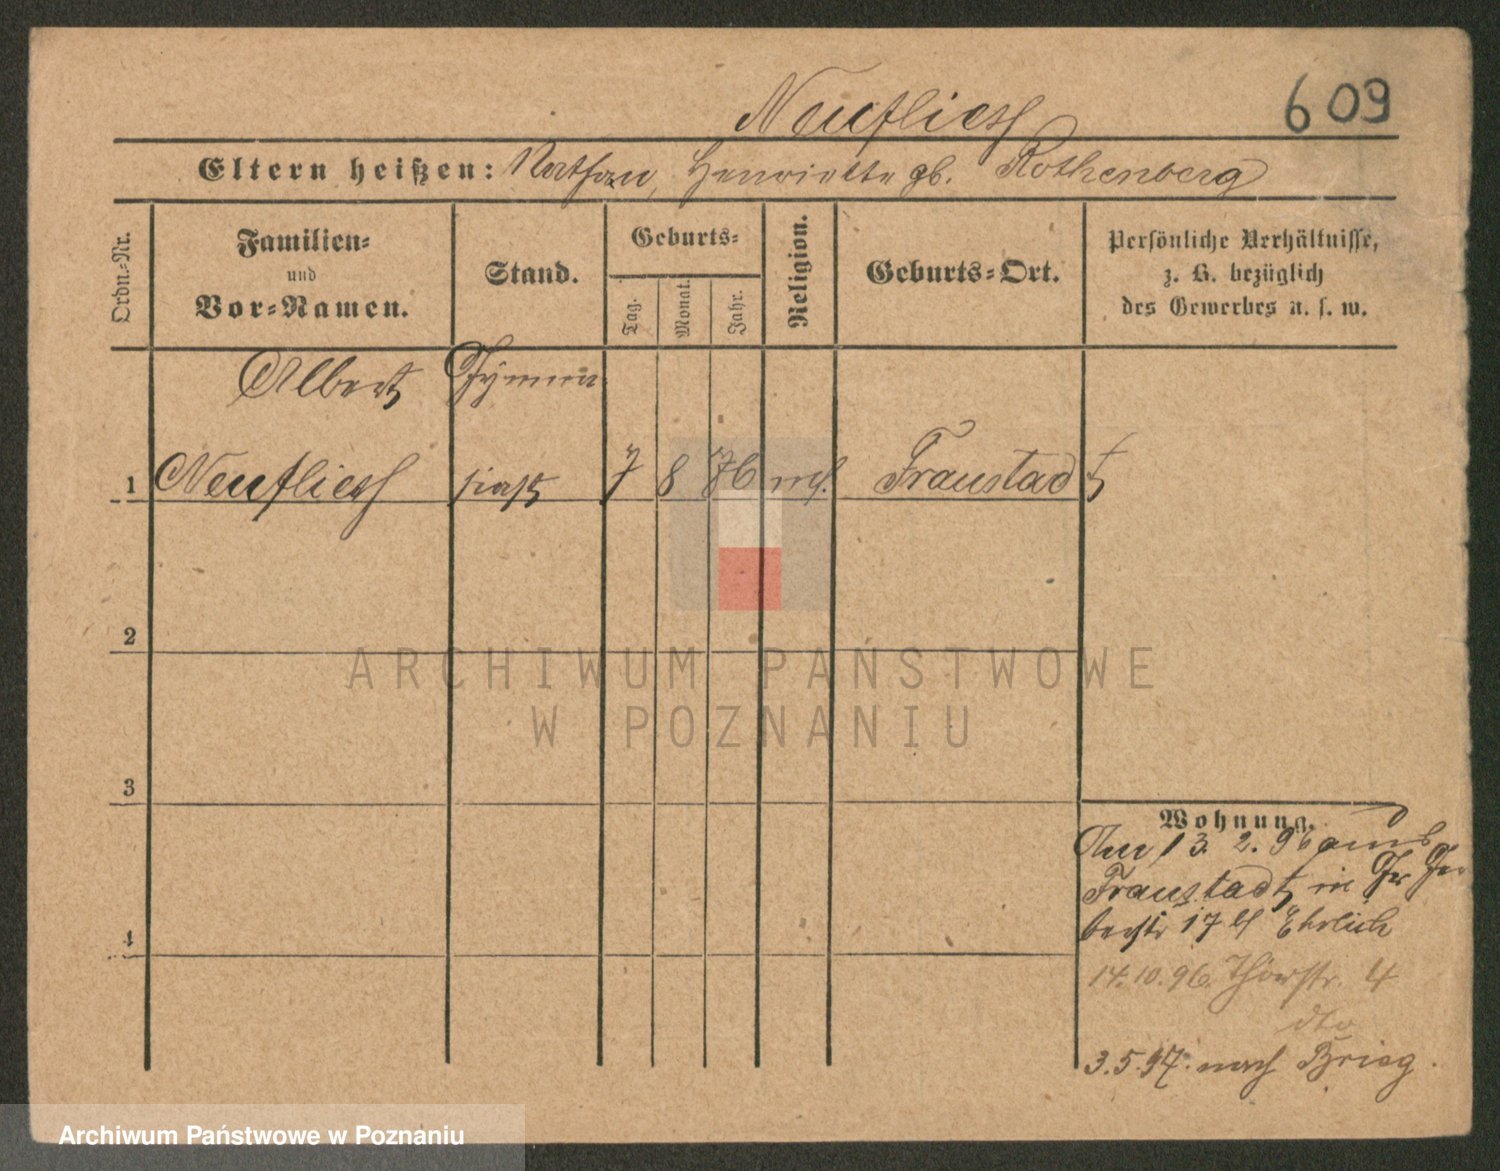 Neufliess
609
Eltern heißen: Nathan, Henriette gb. Rothenberg
Ordn.-Nr.
Familien-
und
Vor-Namen.
Stand.
Geburts-
Tag.
Monat.
Jahr.
Religion.
Geburts-Ort.
Persönliche Verhältnisse,
z. B. bezüglich
des Gewerbes u. s. w.
Albert Gymna-
1 Neufliess siast 7 8 76 mos. Fraustadt
2
ARCHIWUM PAŃSTWOWE
W POZNANIU
3
Wohnung.
13. 2. 96 aus
Fraustadt in
17 Ehrlich
4
14.10.96. Thorstr. 4
dto
3.5.97. nach Brieg.
Archiwum Państwowe w Poznaniu